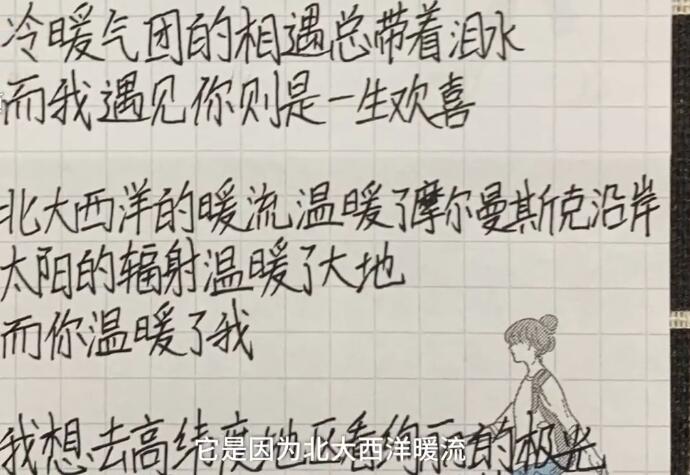 冷暖气团的相遇总带着泪水
而我遇见你则是一生欢喜
北大西洋的暖流温暖了摩尔曼斯克沿岸
太阳的辐射温暖了大地
而你温暖了我
我想去高纬度地区看绚丽的极光
它是因为北大西洋暖流